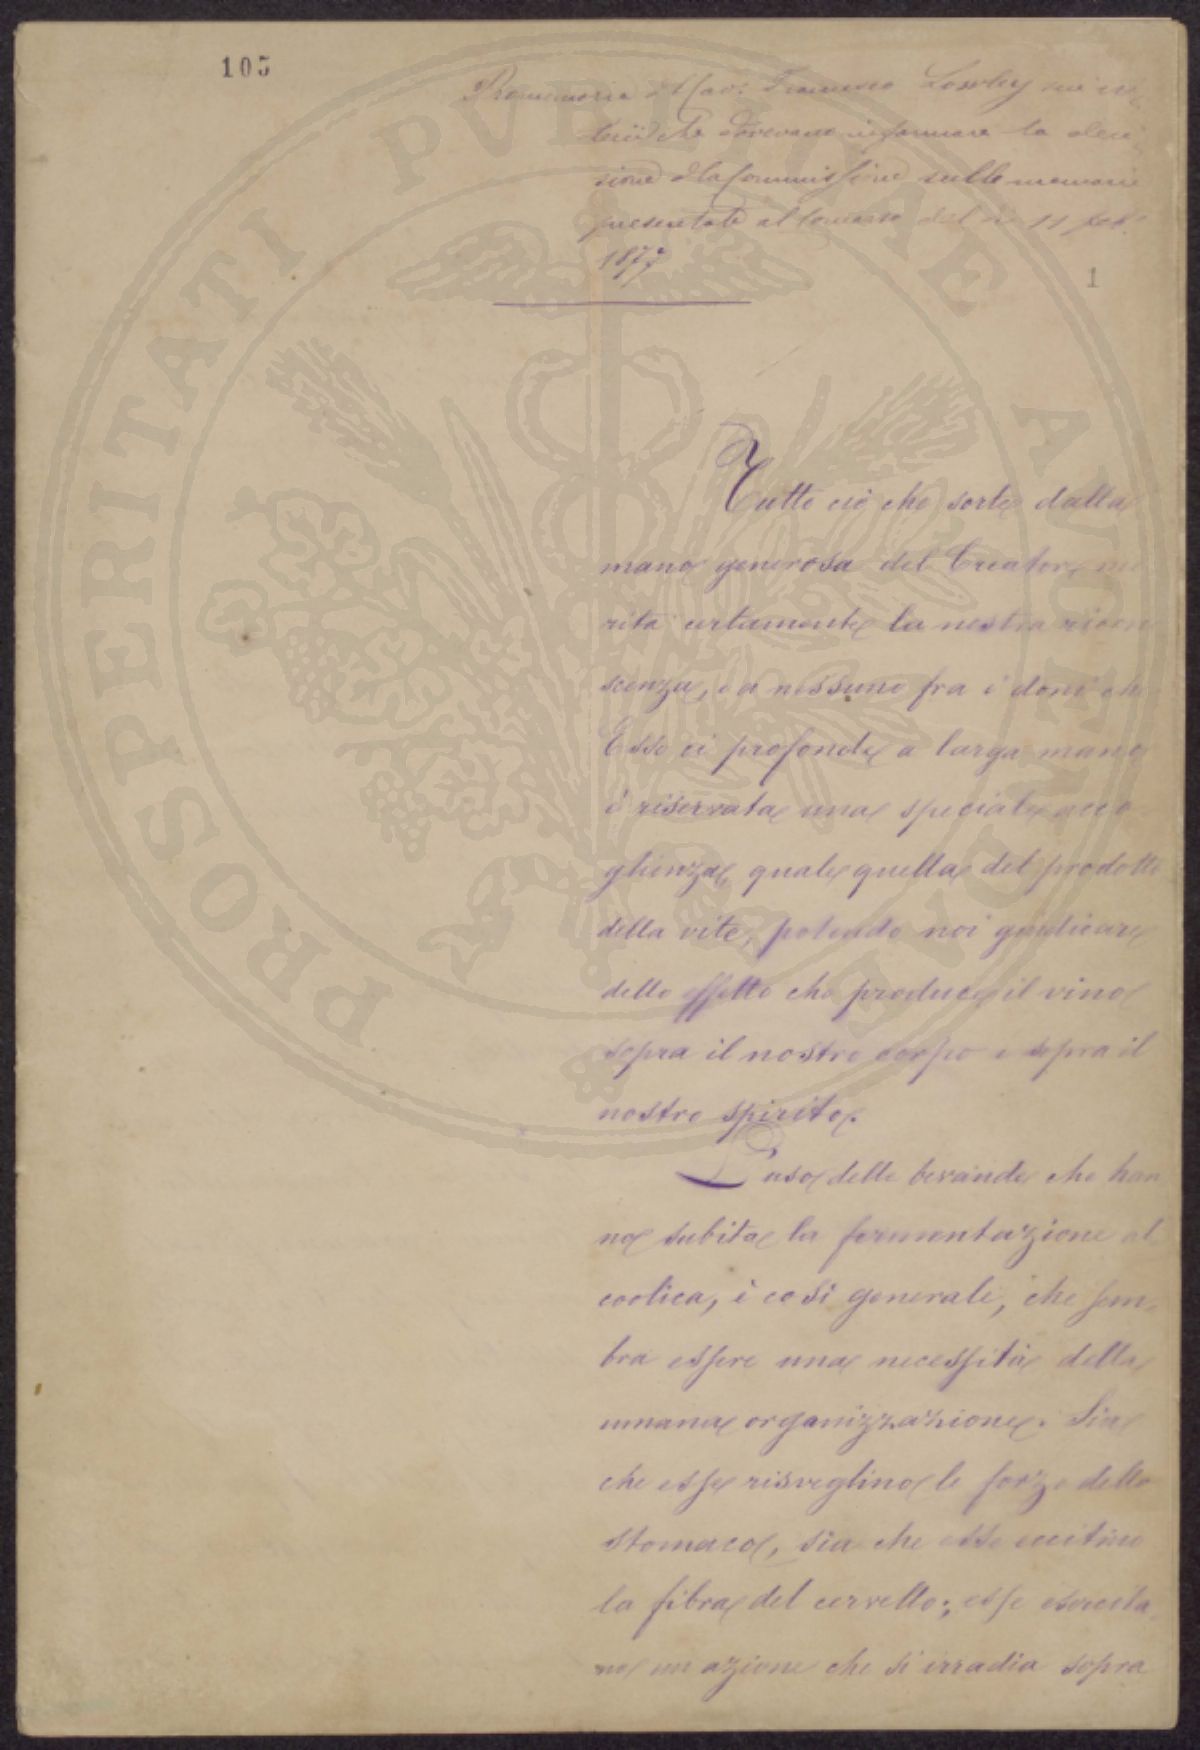 105
Promemoria del Cav. Francesco Lawley sui cri-
terii che dovevano informare la deci-
sione della Commissione sulle memorie
presentate al Concorso del dì 11 feb.º
1877
1
Tutto ciò che sorte dalla
mano generosa del Creatore me
rita certamente la nostra ricono
scenza, e a nessuno fra i doni che
Esso ci profonde a larga mano
è riservata una speciale acco
glienza, quale quella del prodotto
della vite, potendo noi giudicare
dello effetto che produce il vino
sopra il nostro corpo e sopra il
nostro spirito.
L'uso delle bevande che han
no subita la fermentazione al
coolica, è così generale, che sem-
bra essere una necessità della
umana organizzazione. Sia
che esse risveglino le forze dello
stomaco, sia che esse eccitino
la fibra del cervello; esse esercita
no un azione che si irradia sopra
PROSPERITATI PUBLICAE AUGENDAE